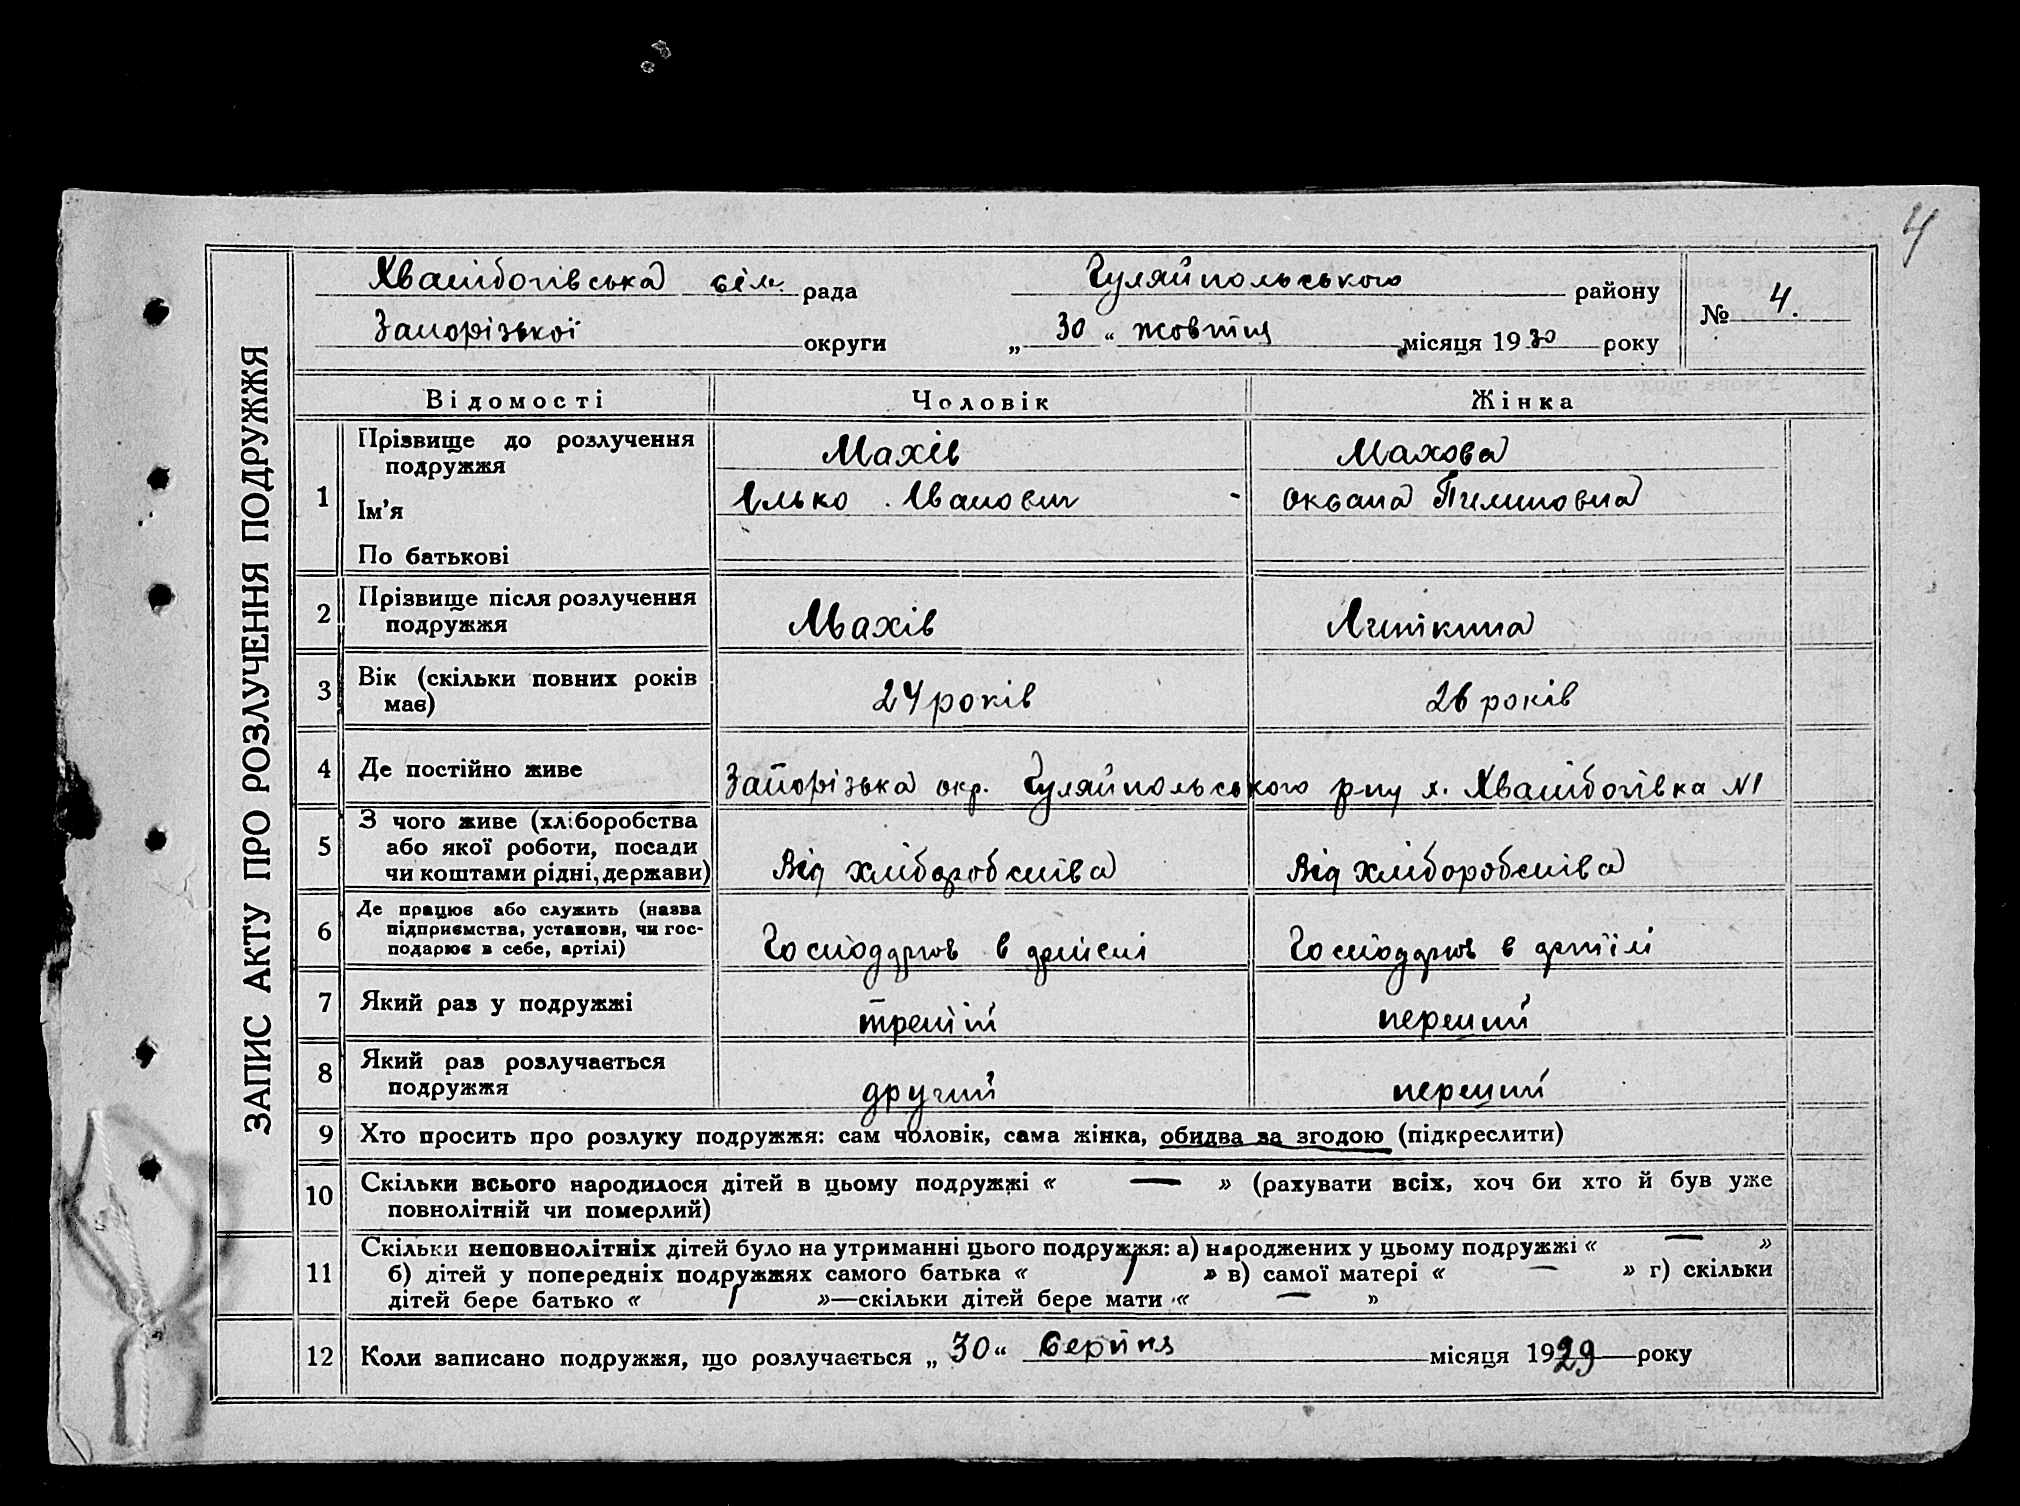 4
Хвалібогівська сіль. рада Гуляйпольського району № 4.
Запорізької округи „ 30 “ жовтня місяця 1930 року
ЗАПИС АКТУ ПРО РОЗЛУЧЕННЯ ПОДРУЖЖЯ
Відомості Чоловік Жінка
1 Прізвище до розлучення Махів Махова
подружжя
Ім'я Ілько Іванович - Оксана Пилиповна
По батькові
2 Прізвище після розлучення Махів
подружжя
3 Вік (скільки повних років 24 років 26 років
має)
4 Де постійно живе Запорізька окр. Гуляйпольського р-ну х. Хвалібогівка №1
5 З чого живе (хліборобства
або якої роботи, посади Від хліборобства Від хліборобства
чи коштами рідні, держави)
6 Де працює або служить (назва
підприємства, установи, чи гос- Господарює в артілі Господарює в артілі
подарює в себе, артілі)
7 Який раз у подружжі третій перший
8 Який раз розлучається другий перший
подружжя
9 Хто просить про розлуку подружжя: сам чоловік, сама жінка, обидва за згодою (підкреслити)
10 Скільки всього народилося дітей в цьому подружжі « — » (рахувати всіх, хоч би хто й був уже
повнолітній чи померлий)
11 Скільки неповнолітніх дітей було на утриманні цього подружжя: а) народжених у цьому подружжі « — »
б) дітей у попередніх подружжях самого батька « 1 » в) самої матері « — » г) скільки
дітей бере батько « 1 »—скільки дітей бере мати « — »
12 Коли записано подружжя, що розлучається „ 30 “ серпня місяця 1929 року